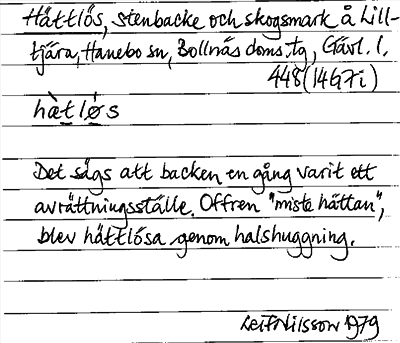 Hättlös, stenbacke och skogsmark å Lill-
tjära, Hanebo sn, Bollnäs doms.tg, Gävl. l.
448 (14G7i)
hàtlǿs
Det sägs att backen en gång varit ett
avrättningsställe. Offren "miste hättan",
blev hättlösa genom halshuggning.
Leif Nilsson 1979